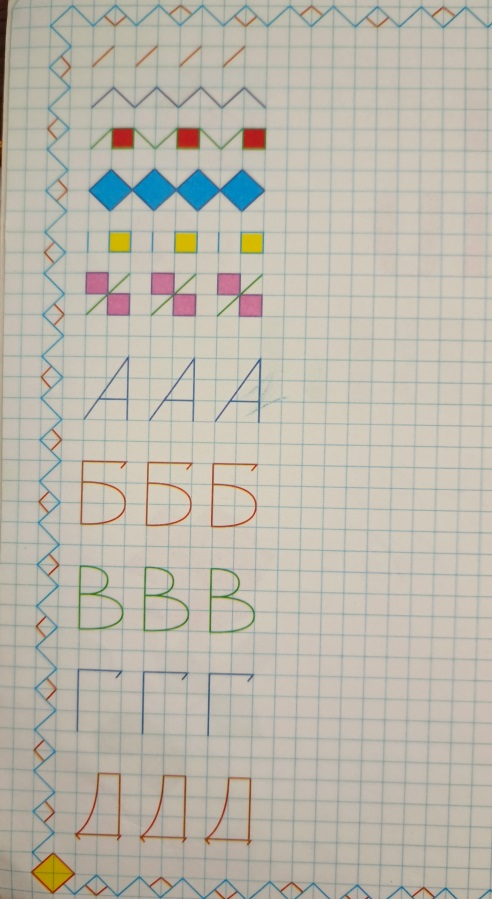 А А А
Б Б Б
В В В
Г Г Г
Д Д Д